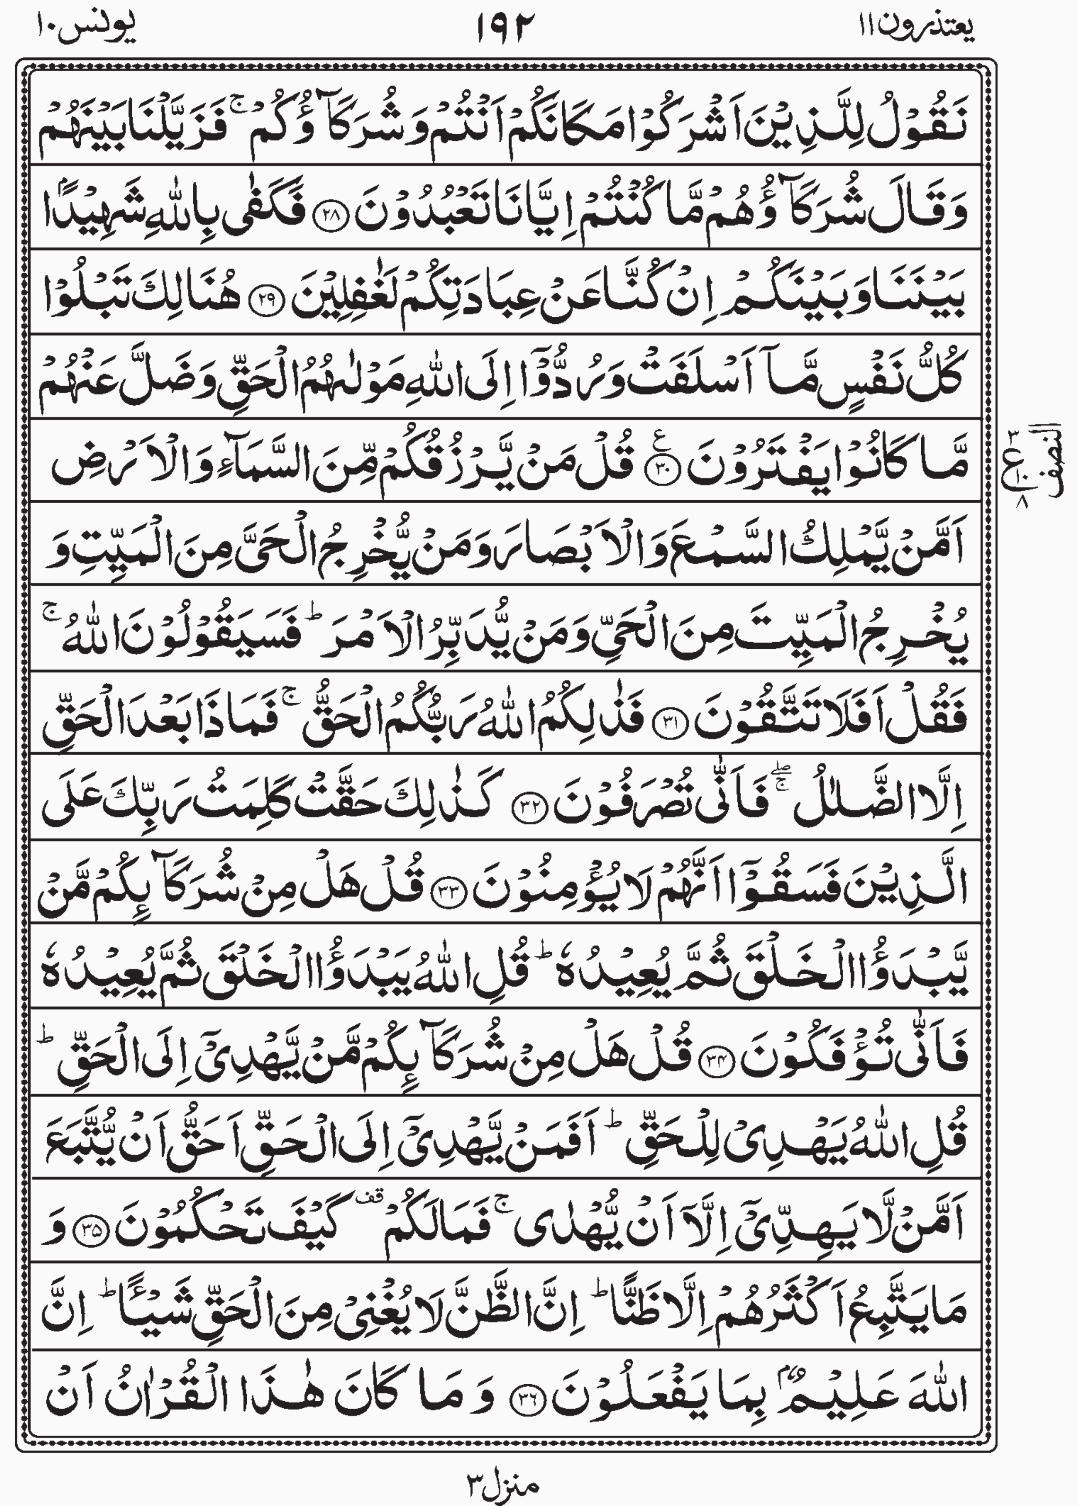 يعتذرون ١١ ١٩٢ يونس ١٠
نَقُوْلُ لِلَّذِيْنَ اَشْرَكُوْا مَكَانَكُمْ اَنْتُمْ وَشُرَكَآؤُكُمْ ۚ فَزَيَّلْنَا بَيْنَهُمْ
وَقَالَ شُرَكَآؤُهُمْ مَّا كُنْتُمْ اِيَّانَا تَعْبُدُوْنَ ﴿٢٨﴾ فَكَفٰى بِاللّٰهِ شَهِيْدًۢا
بَيْنَنَا وَبَيْنَكُمْ اِنْ كُنَّا عَنْ عِبَادَتِكُمْ لَغٰفِلِيْنَ ﴿٢٩﴾ هُنَالِكَ تَبْلُوْا
كُلُّ نَفْسٍ مَّآ اَسْلَفَتْ وَرُدُّوْٓا اِلَى اللّٰهِ مَوْلٰىهُمُ الْحَقِّ وَضَلَّ عَنْهُمْ
مَّا كَانُوْا يَفْتَرُوْنَ ﴿٣٠﴾ ع قُلْ مَنْ يَّرْزُقُكُمْ مِّنَ السَّمَآءِ وَالْاَرْضِ
اَمَّنْ يَّمْلِكُ السَّمْعَ وَالْاَبْصَارَ وَمَنْ يُّخْرِجُ الْحَيَّ مِنَ الْمَيِّتِ وَ
يُخْرِجُ الْمَيِّتَ مِنَ الْحَيِّ وَمَنْ يُّدَبِّرُ الْاَمْرَ ؕ فَسَيَقُوْلُوْنَ اللّٰهُ ۚ
فَقُلْ اَفَلَا تَتَّقُوْنَ ﴿٣١﴾ فَذٰلِكُمُ اللّٰهُ رَبُّكُمُ الْحَقُّ ۚ فَمَاذَا بَعْدَ الْحَقِّ
اِلَّا الضَّلٰلُ ۖۚ فَاَنّٰى تُصْرَفُوْنَ ﴿٣٢﴾ كَذٰلِكَ حَقَّتْ كَلِمَتُ رَبِّكَ عَلَى
الَّذِيْنَ فَسَقُوْٓا اَنَّهُمْ لَا يُؤْمِنُوْنَ ﴿٣٣﴾ قُلْ هَلْ مِنْ شُرَكَآئِكُمْ مَّنْ
يَّبْدَؤُا الْخَلْقَ ثُمَّ يُعِيْدُهٗ ؕ قُلِ اللّٰهُ يَبْدَؤُا الْخَلْقَ ثُمَّ يُعِيْدُهٗ
فَاَنّٰى تُؤْفَكُوْنَ ﴿٣٤﴾ قُلْ هَلْ مِنْ شُرَكَآئِكُمْ مَّنْ يَّهْدِيْٓ اِلَى الْحَقِّ ؕ
قُلِ اللّٰهُ يَهْدِيْ لِلْحَقِّ ؕ اَفَمَنْ يَّهْدِيْٓ اِلَى الْحَقِّ اَحَقُّ اَنْ يُّتَّبَعَ
اَمَّنْ لَّا يَهِدِّيْٓ اِلَّآ اَنْ يُّهْدٰى ۚ فَمَا لَكُمْ قف كَيْفَ تَحْكُمُوْنَ ﴿٣٥﴾ وَ
مَا يَتَّبِعُ اَكْثَرُهُمْ اِلَّا ظَنًّا ؕ اِنَّ الظَّنَّ لَا يُغْنِيْ مِنَ الْحَقِّ شَيْـًٔا ؕ اِنَّ
اللّٰهَ عَلِيْمٌۢ بِمَا يَفْعَلُوْنَ ﴿٣٦﴾ وَمَا كَانَ هٰذَا الْقُرْاٰنُ اَنْ
النصف
٣
ع
١٠
٨
منزل ٣